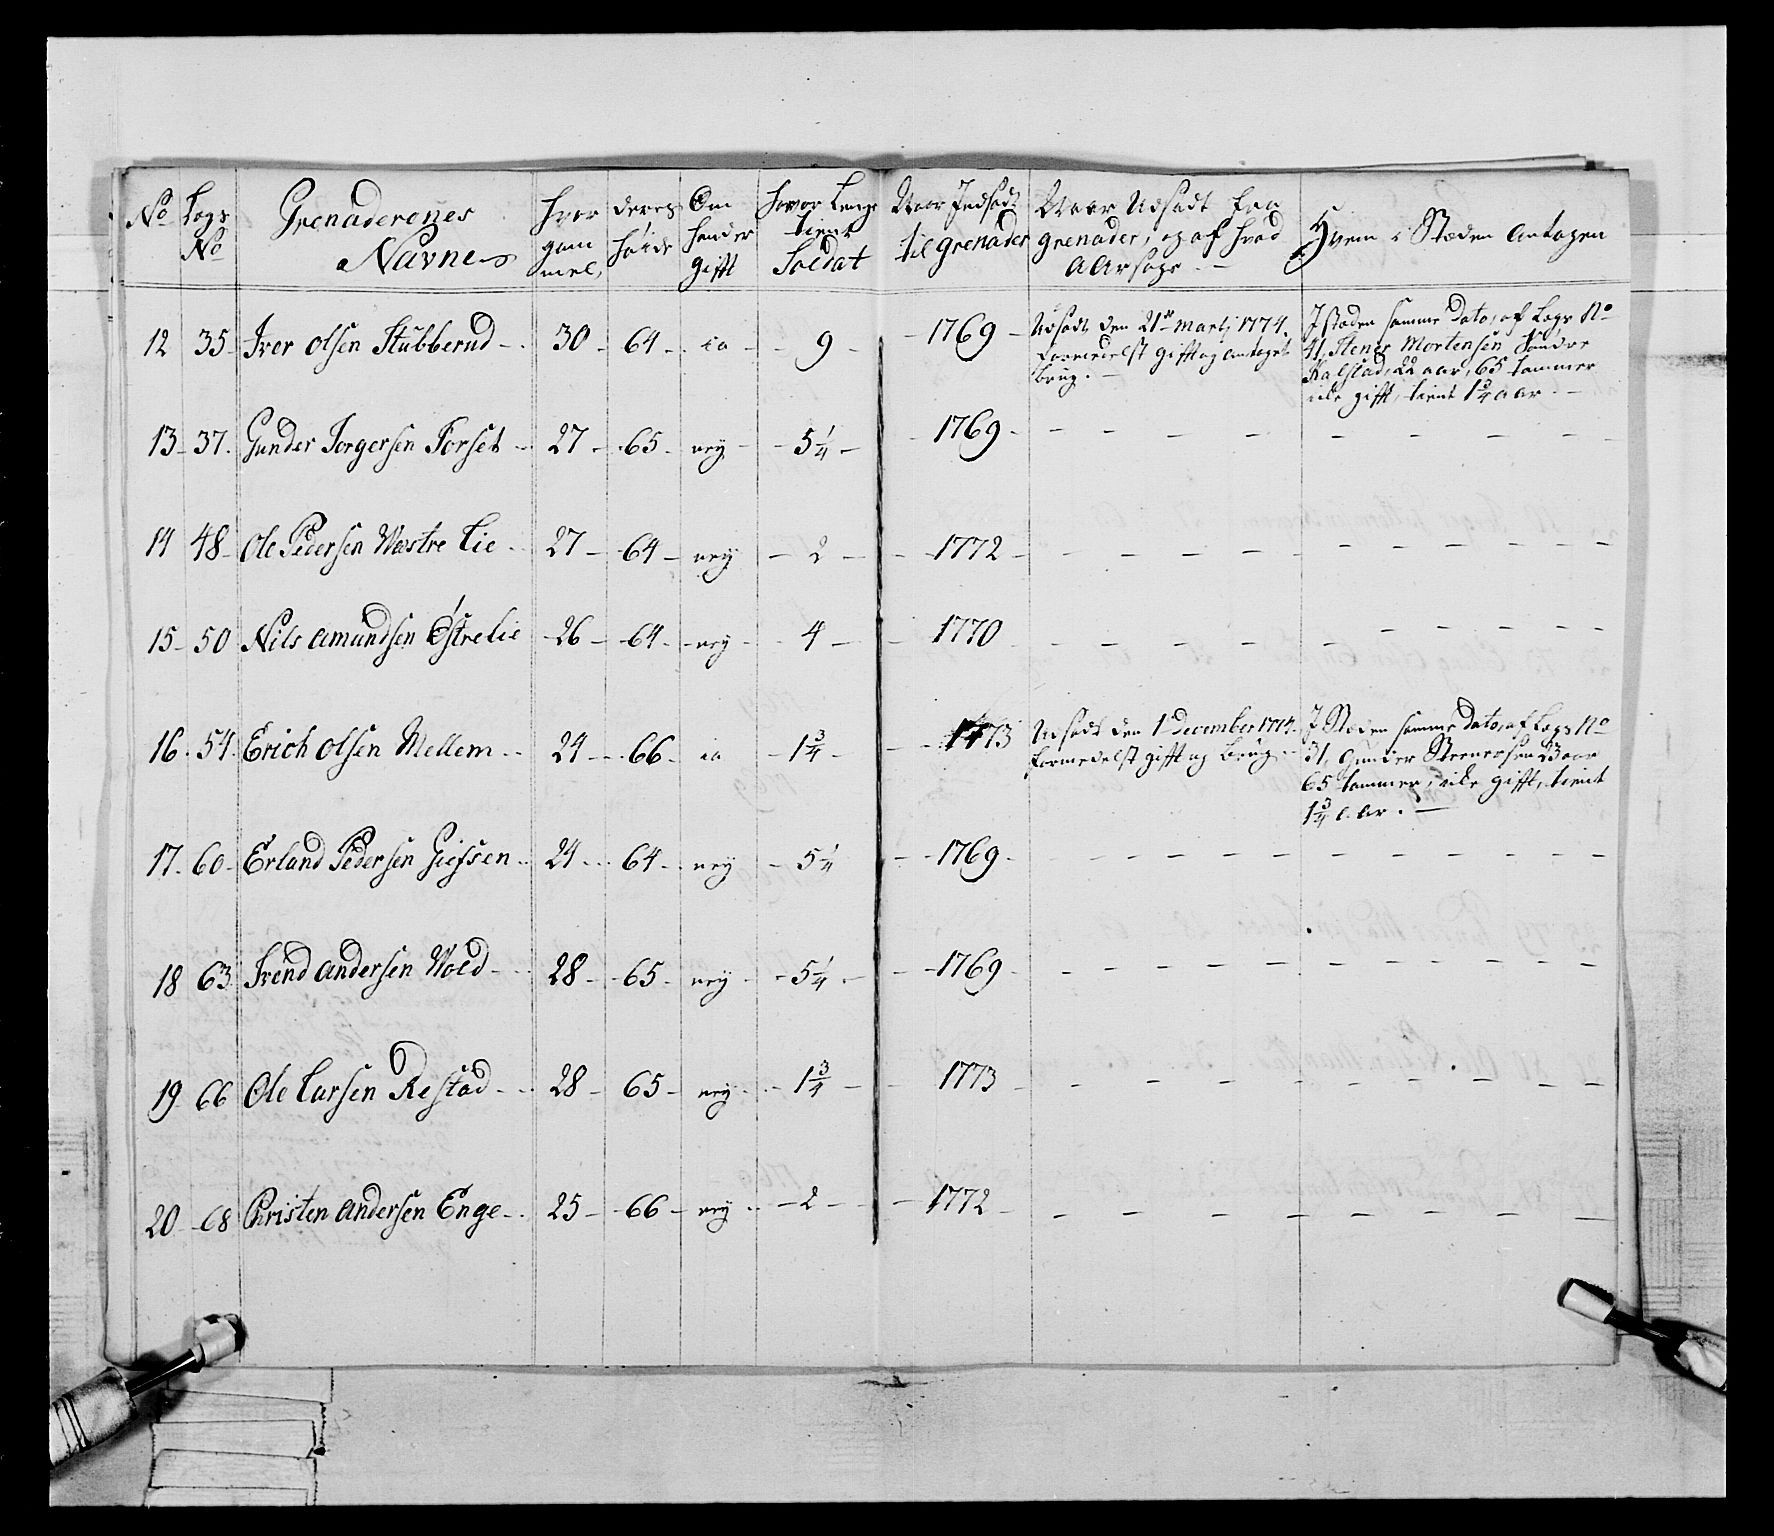 No Legs No Grenaderenes Navne hvor gammel, deres høide Om hand er gifft hvor lenge tient Soldat Naar Indsadt til grenader Naar Udsadt fra grenader, og af hvad Aarsage. Hvem i Stæden Antagen
12 35 Iver Olsen Stubberud 30 64 ia 9 1769 Udsadt den 21de Martj 1774.
formedelst Gifft og antaget
brug.
I stæden samme dato, af Legs No
41, Stener Mortensen Søndre
Kalstad, 22 aar, 65 tommer
icke gifft, tient 1 3/4 aar.
13 37 Gunder Jorgersen Forset 27 65 ney 5 1/4 1769
14 48 Ole Pedersen Westre Lie 27 64 ney 2 1772
15 50 Nils Amundsen Østre Lie 26 64 ney 4 1770
16 54 Erich Olsen Mellem 24 66 ia 1 3/4 1773 Udsadt den 1 December 1774.
formedelst gifft og brug
I Stæden samme dato, af Legs No
31, Gunder Steenersen 23 aar
65 tommer, icke gifft, tient
1 3/4 aar.
17 60 Erland Pedersen Giefsen 24 64 ney 5 1/4 1769
18 63 Trend Andersen Wold 28 65 ney 5 1/4 1769
19 66 Ole Larsen Restad 28 65 ney 1 3/4 1773
20 68 Christen Andersen Enge 25 66 ney 2 1772